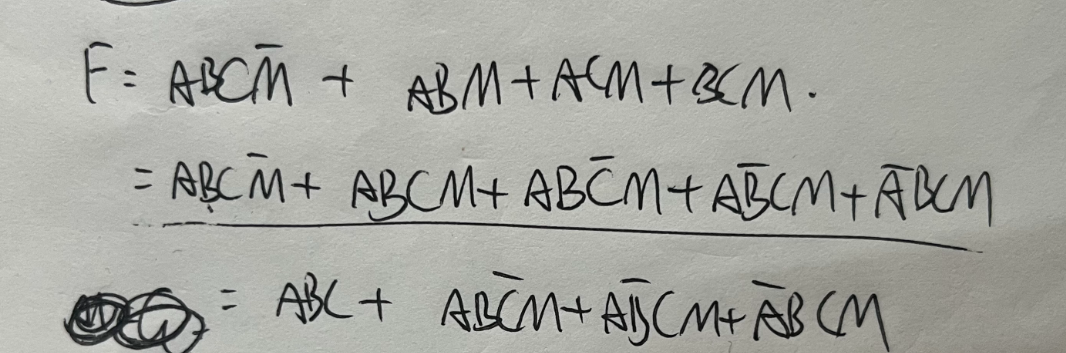 F = ABCM̅ + ABM + ACM + BCM.
= ABCM̅ + ABCM + ABC̅M + AB̅CM + A̅BCM
= ABC + ABC̅M + AB̅CM + A̅BCM